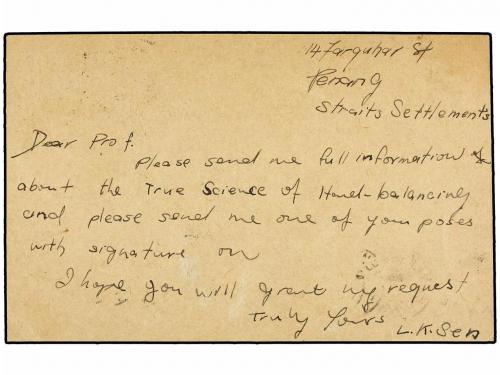 14 Farquhar St
Penang
Straits Settlements
Dear Prof.
Please send me full information
about the True Science of Hand-balancing
and please send me one of your poses
with signature on
I hope you will grant my request
Truly Yours
L.K.Sen